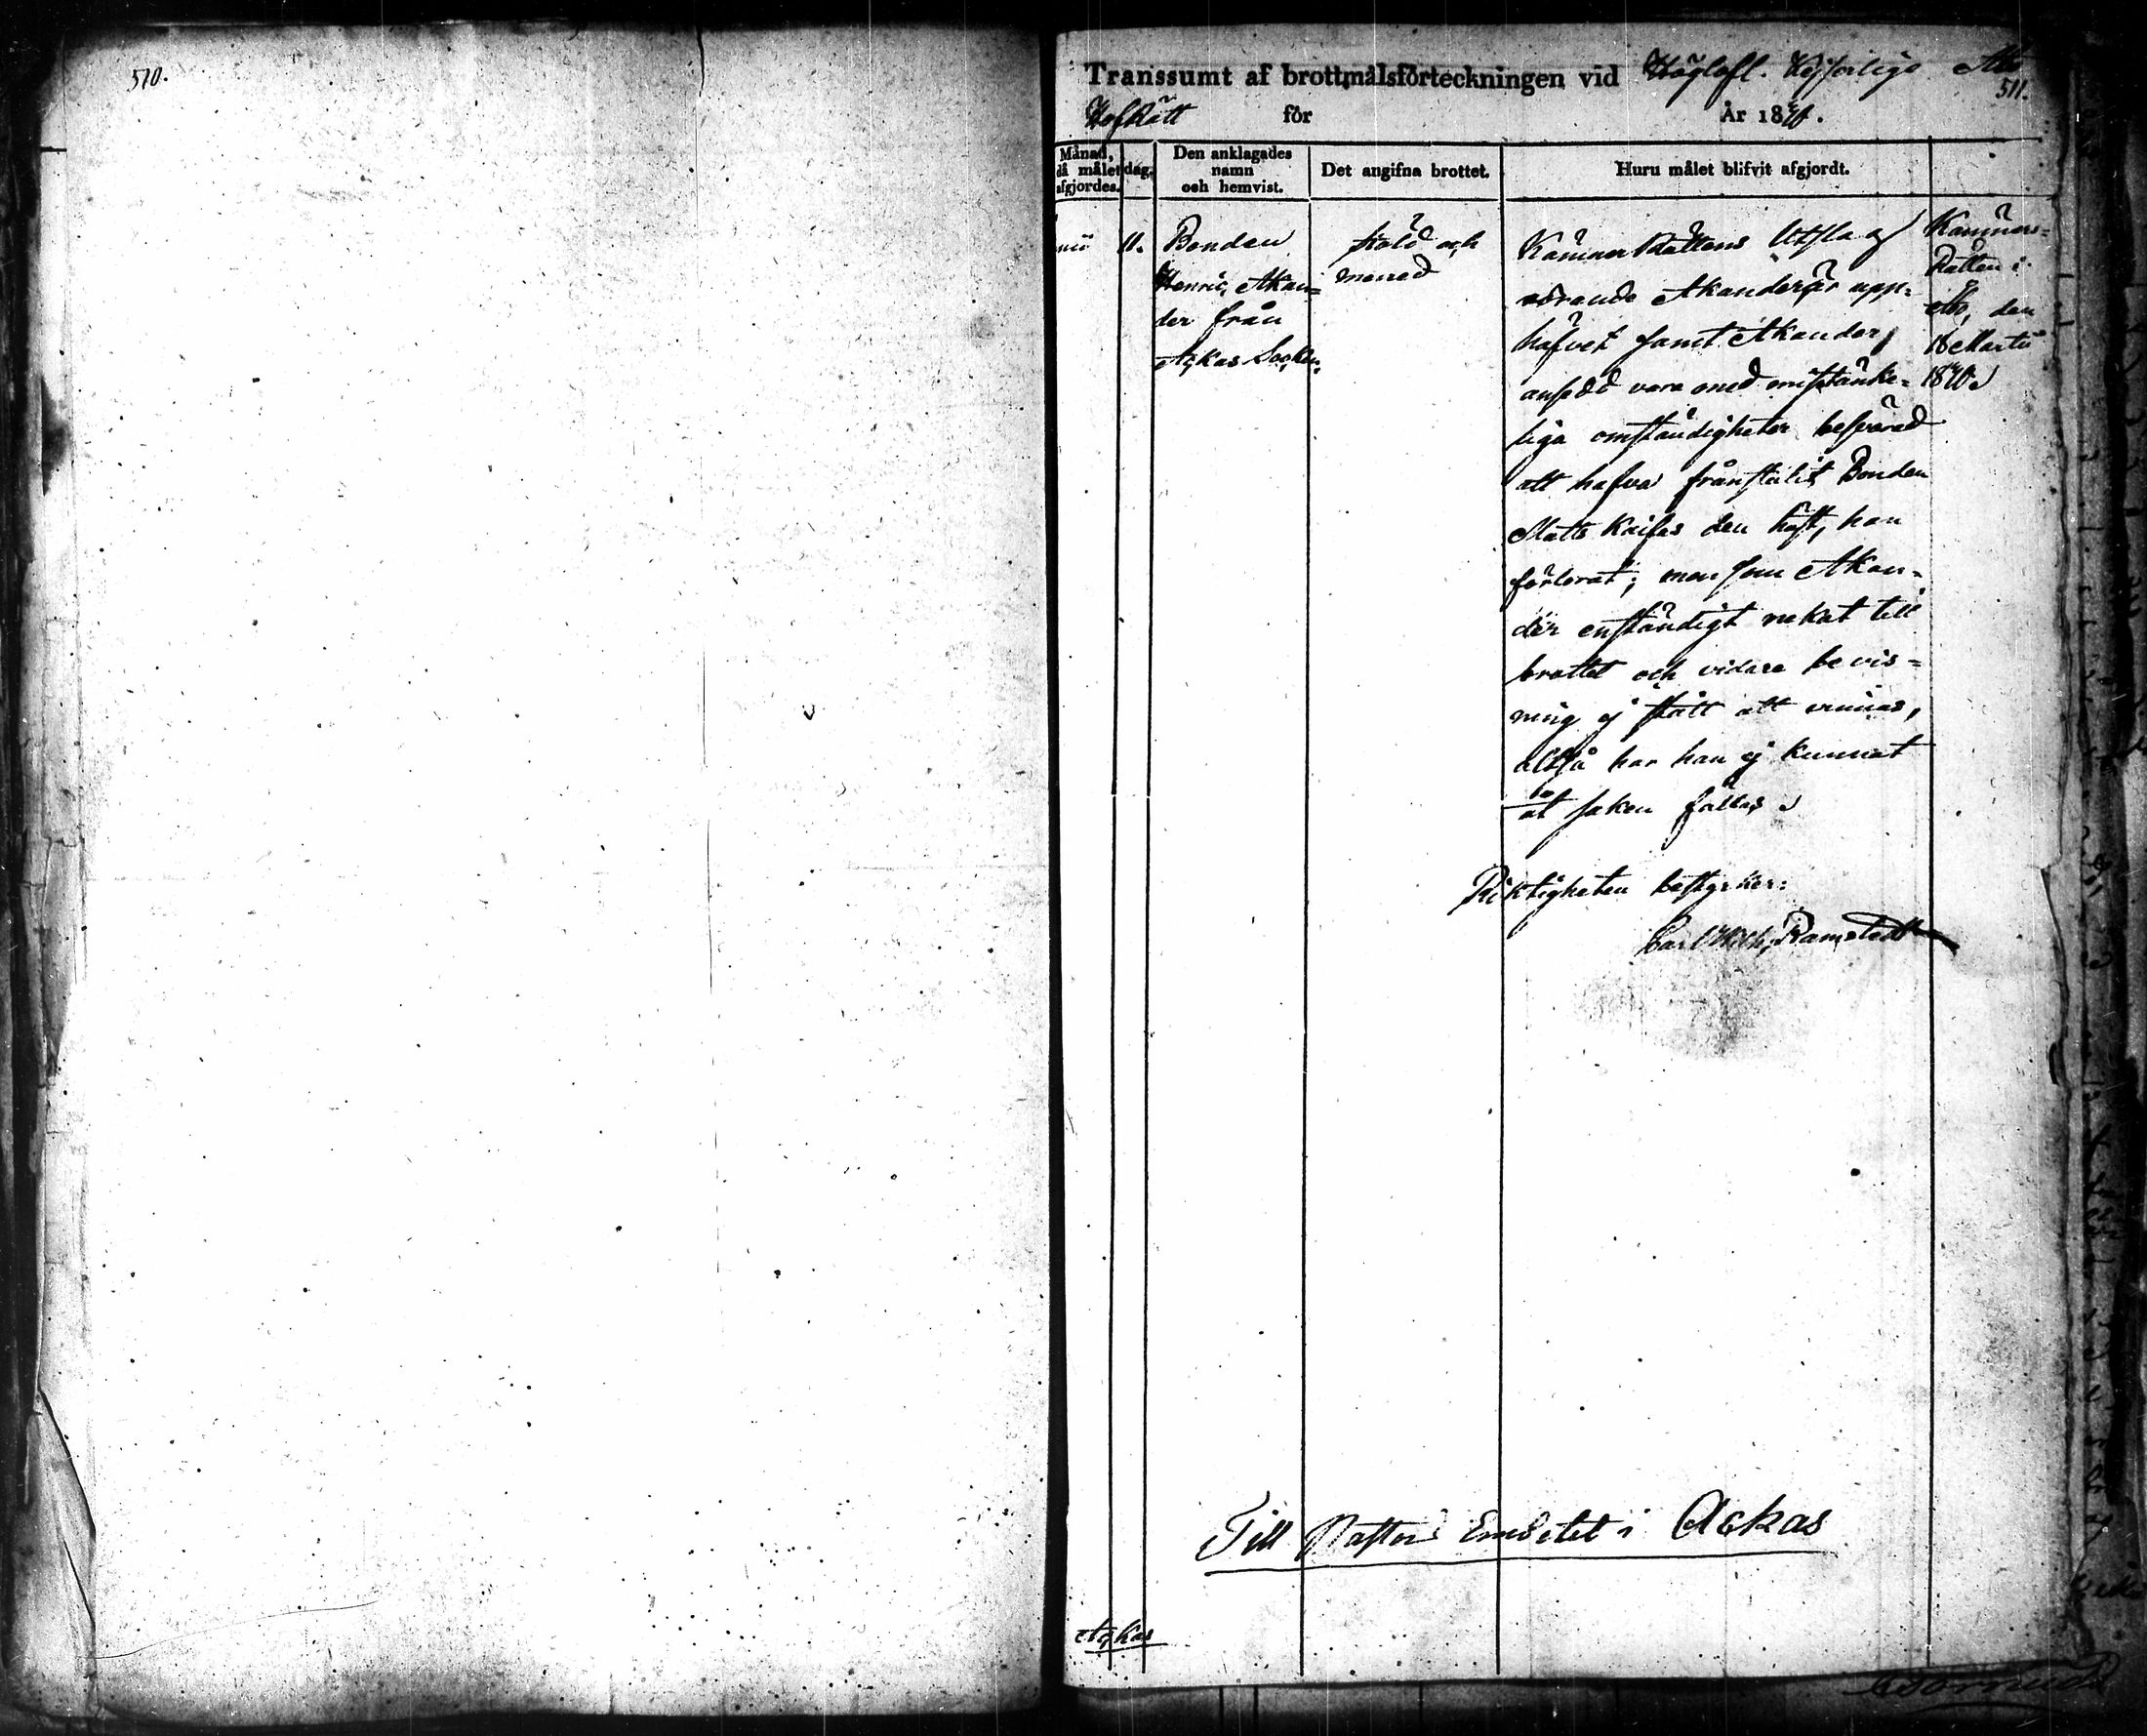 510.
511.
Transsumt af brottmålsförteckningen vid Höglofl. Kejserliga Åbo
HofRätt för År 1840.
Månad, då målet afgjordes.
dag.
Den anklagades namn och hemvist.
Det angifna brottet.
Huru målet blifvit afgjordt.
11.
Bonden
Henric Akan=
der från
Ackas Socken.
stöld och
mened
KämnersRättens Utslag
rörande Akander är upp=
häfvet samt Akander
ansedd vara med misstänke=
liga omständigheter besvärad
att hafva frånstulit Bonden
Matts Kaifas den häst, han
förlorat; men som Akan=
der enständigt nekat till
brottet och vidare bevis=
ning ej stått att vinnas,
altså har han ej kunnat
till saken fällas.
Kämners=
Rätten i
Åbo, den
18 Martii
1840.
Riktigheten bestyrker:
Carl Wilh. Ramstedt
Till Pastors Embetet i Ackas
Ackas